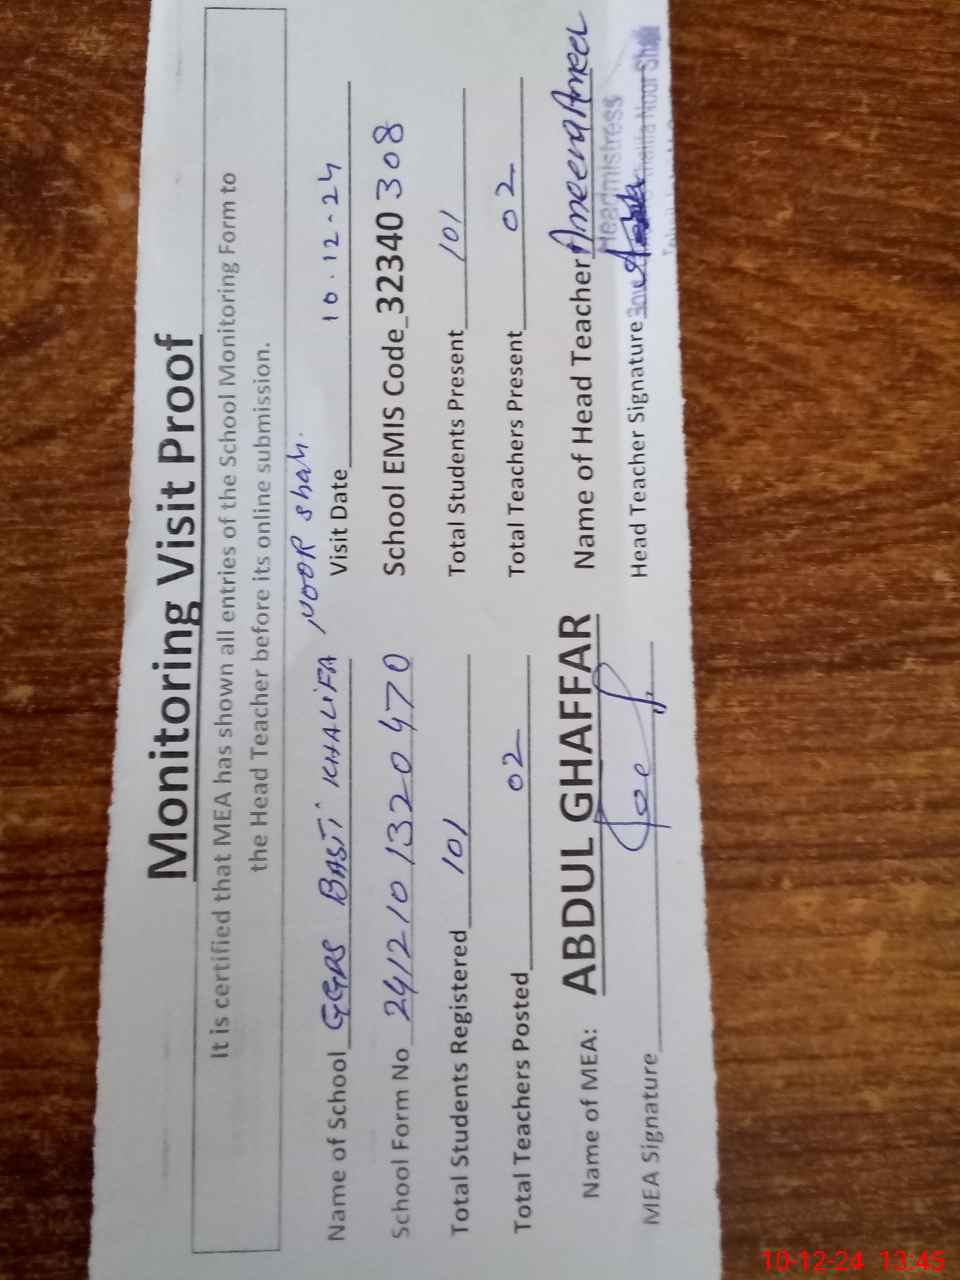 Monitoring Visit Proof
It is certified that MEA has shown all entries of the School Monitoring Form to
the Head Teacher before its online submission.
Name of School GGPS BASTI KHALIFA, NOOR Shah.
Visit Date 10.12.24
School Form No 2412101320470 School EMIS Code_32340308
Total Students Registered 101 Total Students Present 101
Total Teachers Posted 02 Total Teachers Present 02
Name of MEA: ABDUL GHAFFAR Name of Head Teacher Ameena Ameer
MEA Signature Head Teacher Signature
Headmistress
Noor Shah
10-12-24 13:45